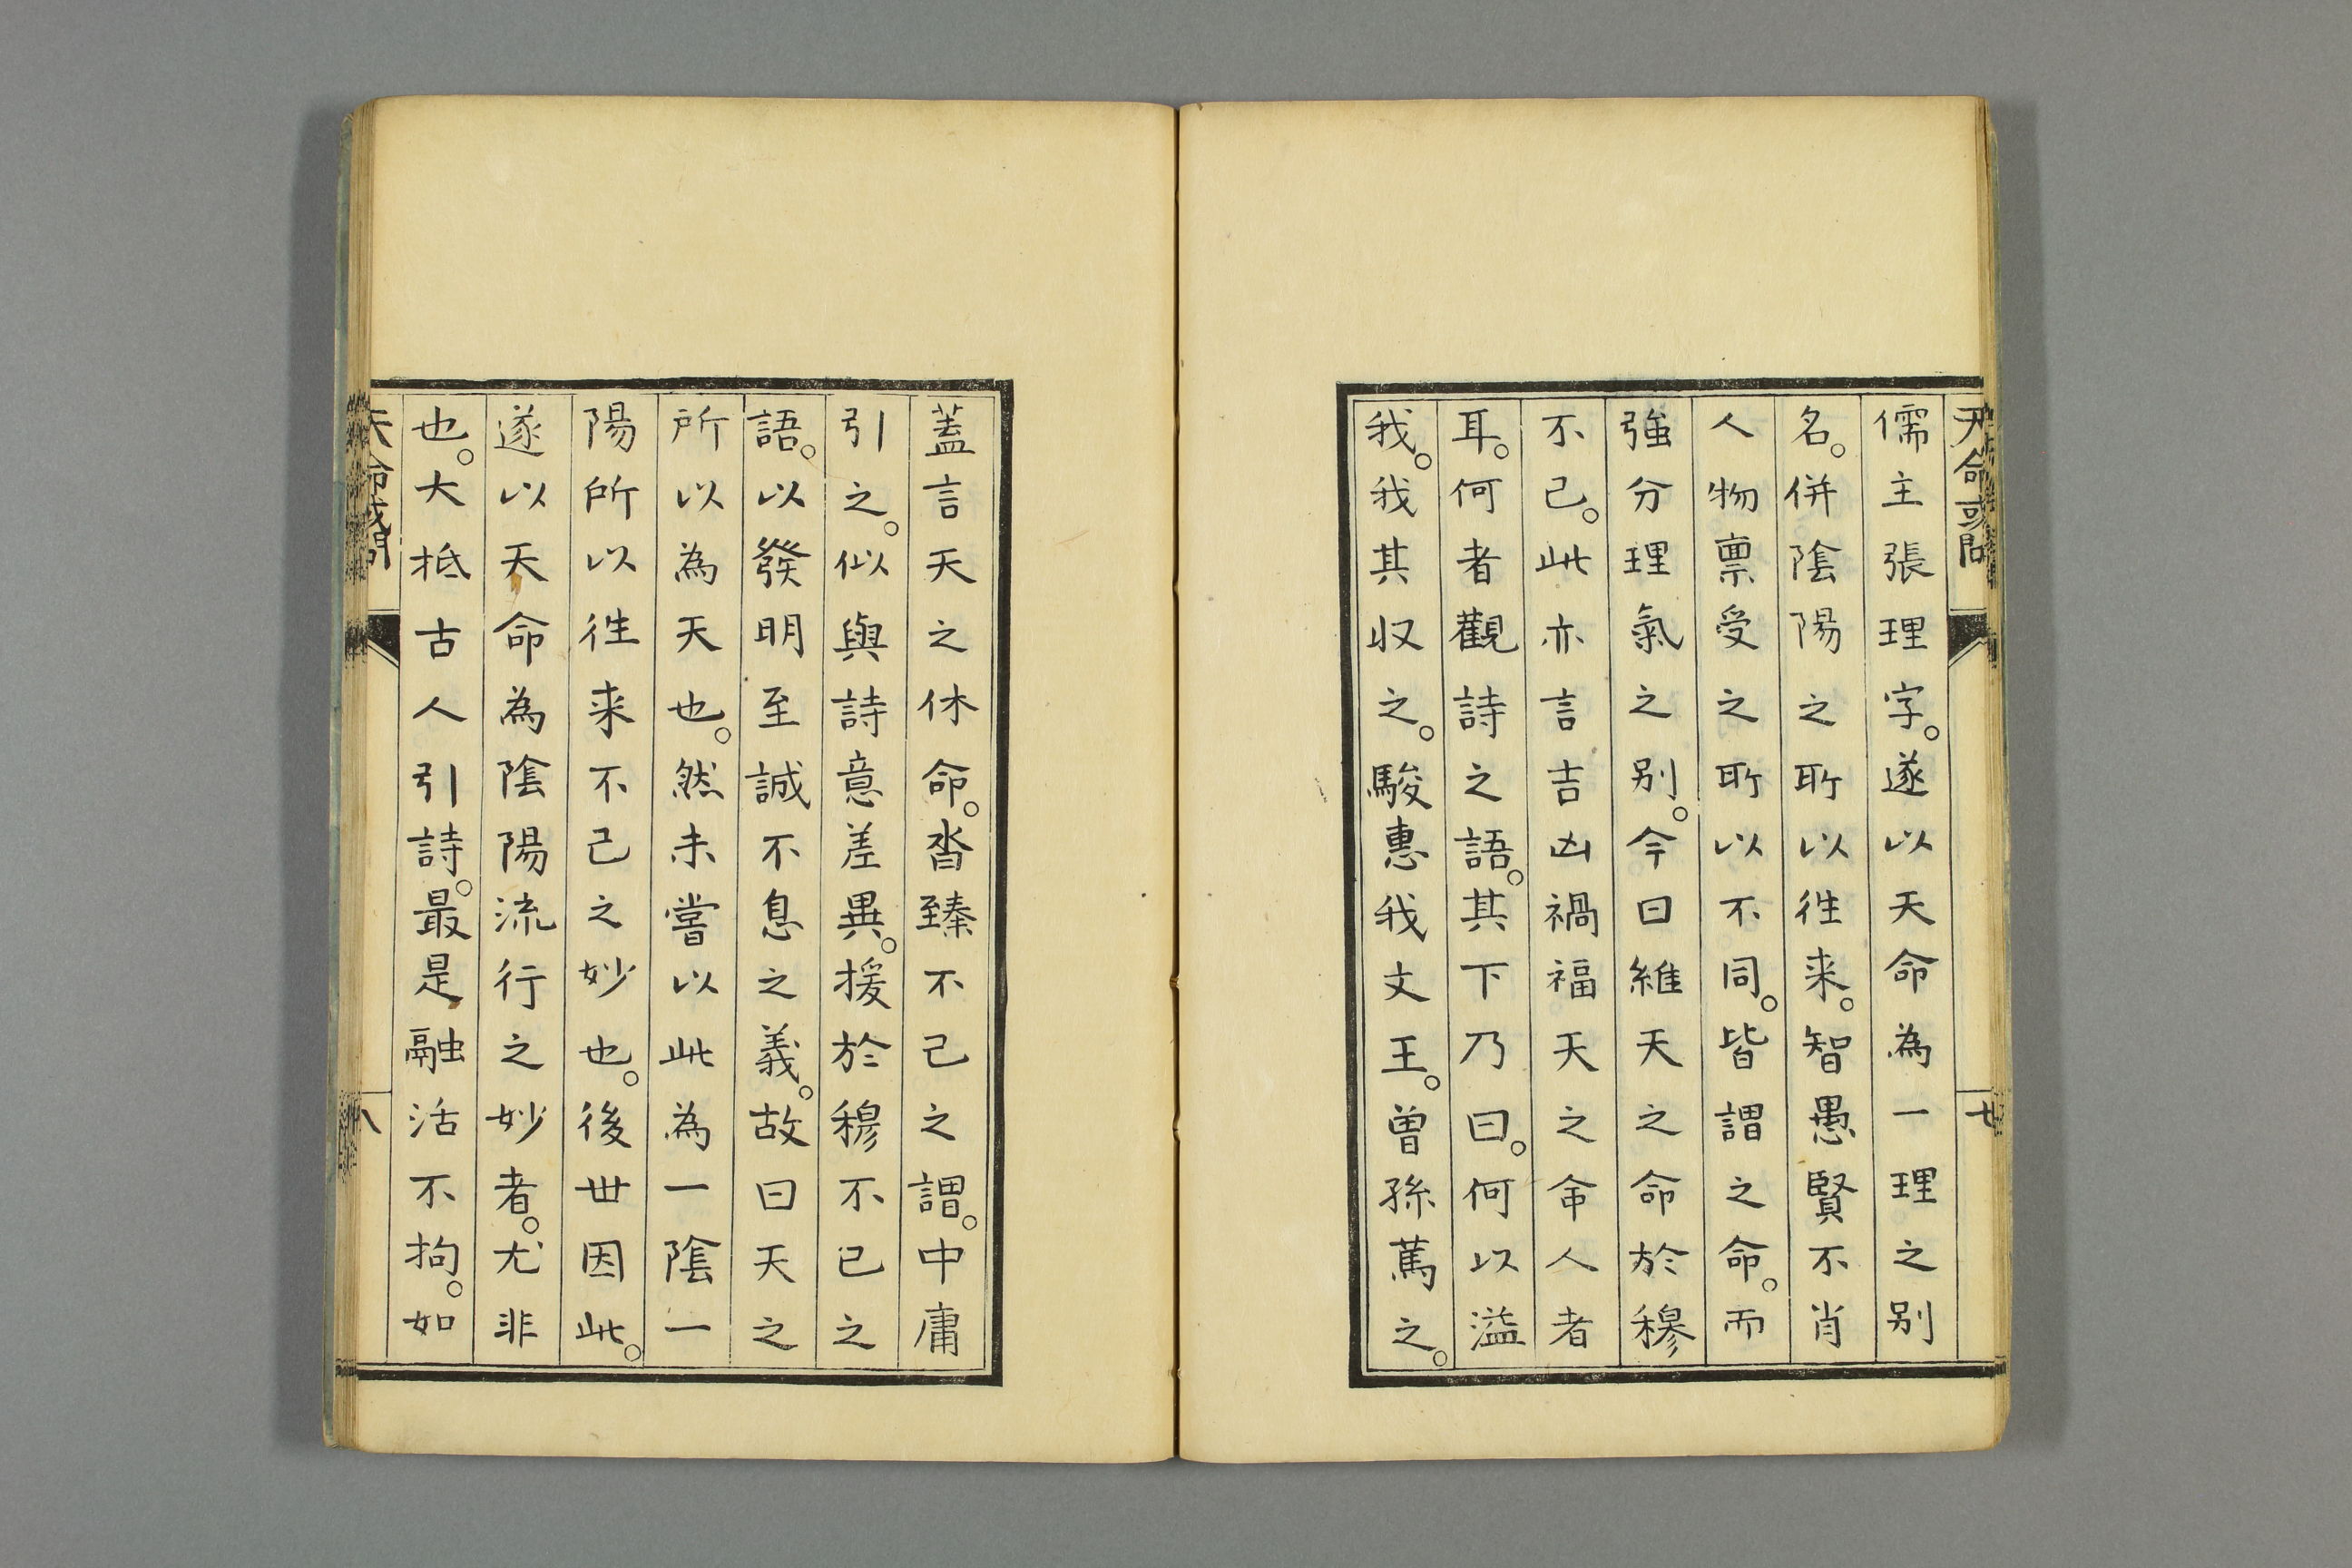 天命或問
儒主張理字。遂以天命為一理之別
名。併陰陽之所以往来。智愚賢不肖
人物禀受之所以不同。皆謂之命。而
強分理氣之別。今曰維天之命於穆
不已。此亦言吉凶禍福天之命人者
耳。何者觀詩之語。其下乃曰。何以溢
我。我其収之。駿惠我文王。曽孫篤之。
蓋言天之休命。沓臻不已之謂。中庸
引之。似與詩意差異。援於穆不已之
語。以發明至誠不息之義。故曰天之
所以為天也。然未嘗以此為一陰一
陽所以往来不已之妙也。後世因此。
遂以天命為陰陽流行之妙者。尤非
也。大抵古人引詩。最是融活不拘。如
天命或問
八